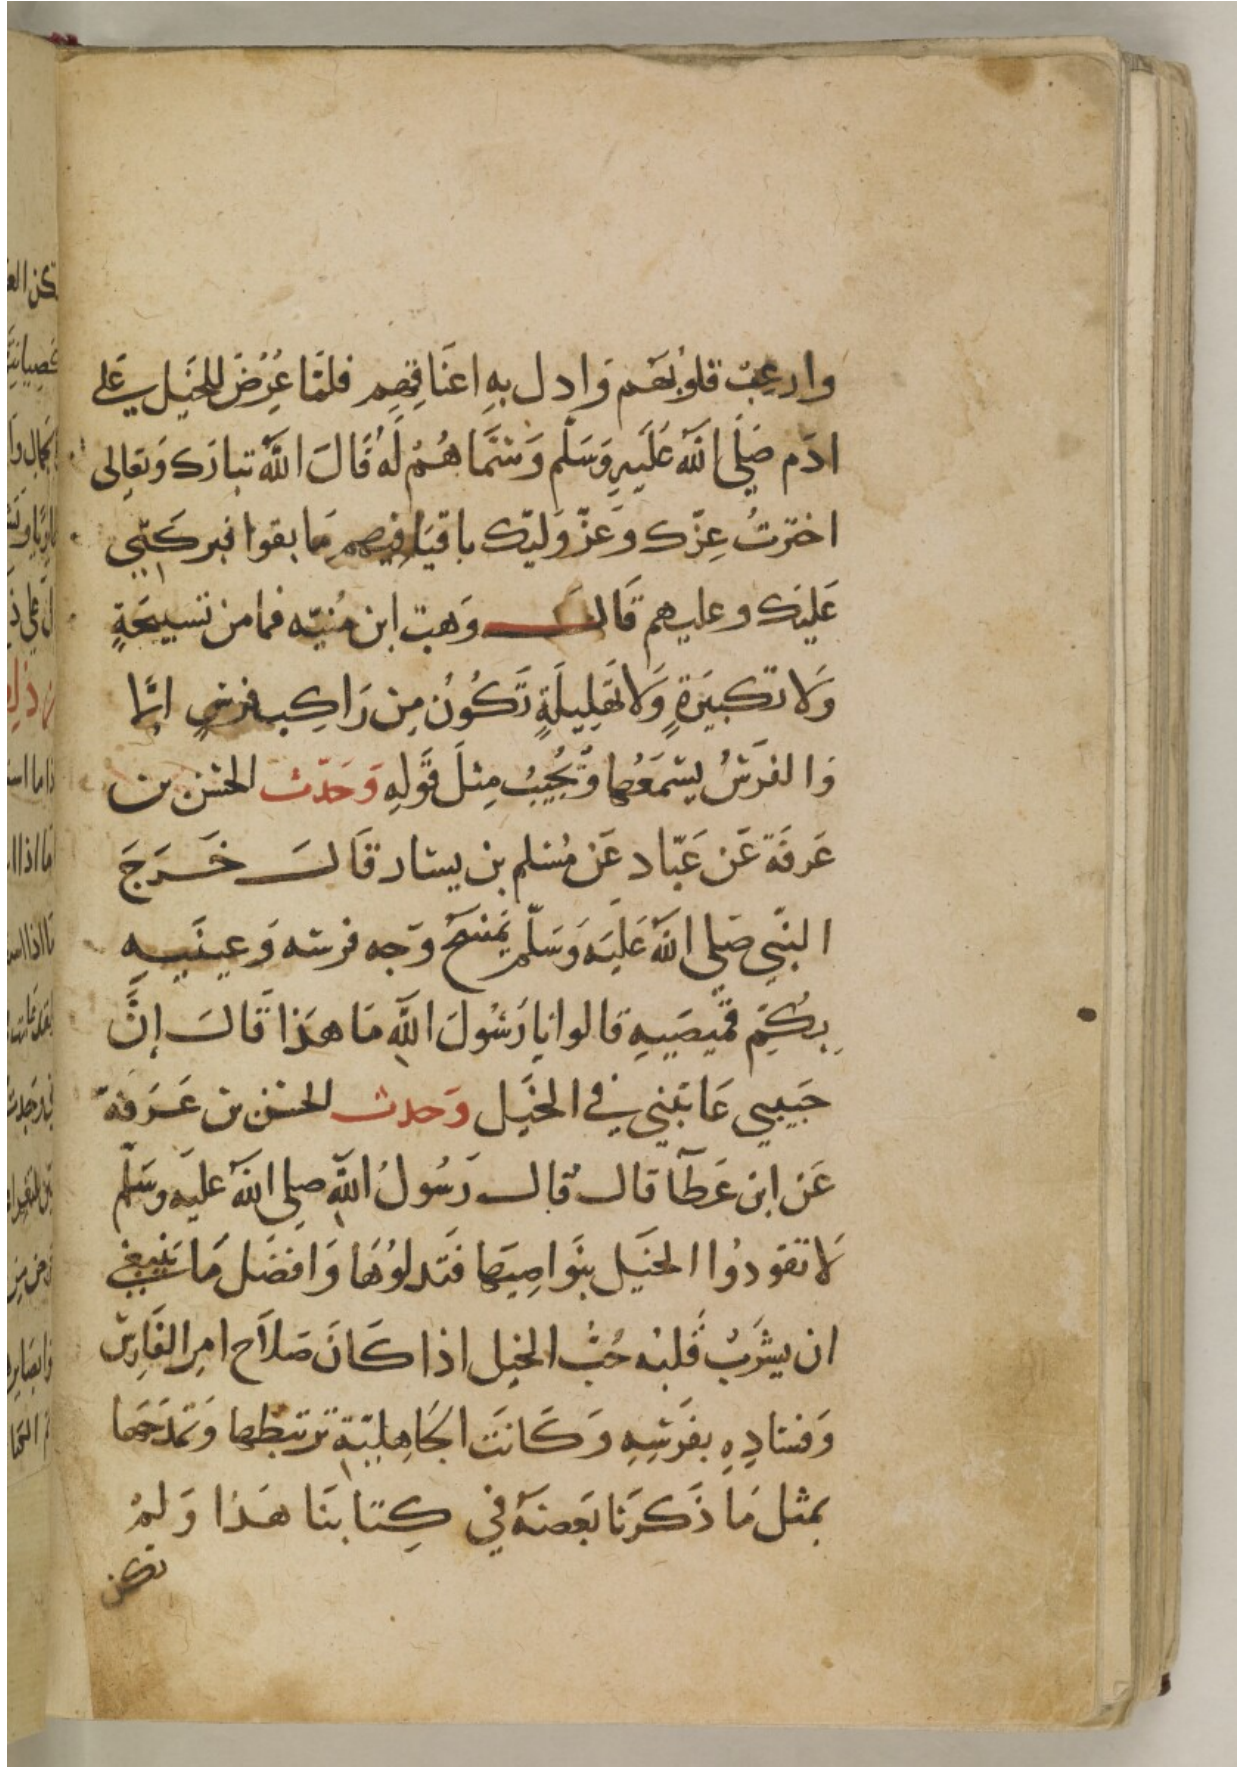 وارعب قلوبهم واذل به اعناقهم فلما عرض للخيل على
ادم صلى الله عليه وسلم وسماهم له قال الله تبارك وتعالى
اخترت عزك وعز وليك باقيا فيهم ما بقوا فبركتي
عليك وعليهم قال وهب ابن منبه فما من تسبيحة
ولا تكبيرة ولا تهليلة تكون من راكب فرس الا
والفرس يسمعها وتجيب مثل قوله وحدث الحسن بن
عرفة عن عباد عن مسلم بن يسار قال خرج
النبي صلى الله عليه وسلم يمسح وجه فرسه وعينيه
بكم قميصيه قالوا يا رسول الله ما هذا قال إن
حبيبي عاتبني في الخيل وحدث الحسن بن عرفة
عن ابن عطآ قال قال رسول الله صلى الله عليه وسلم
لا تقودوا الخيل بنواصيها فتدلوها وافضل ما ينبغي
ان يشرب قلبه حب الخيل اذا كان صلاح امر الفارس
وفساده بفرسه وكانت الجاهلية ترتبطها وتمدحها
بمثل ما ذكرنا بعضه في كتابنا هذا ولم
تكن